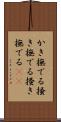 かき撫でる掻
き撫でる掻き
撫でる